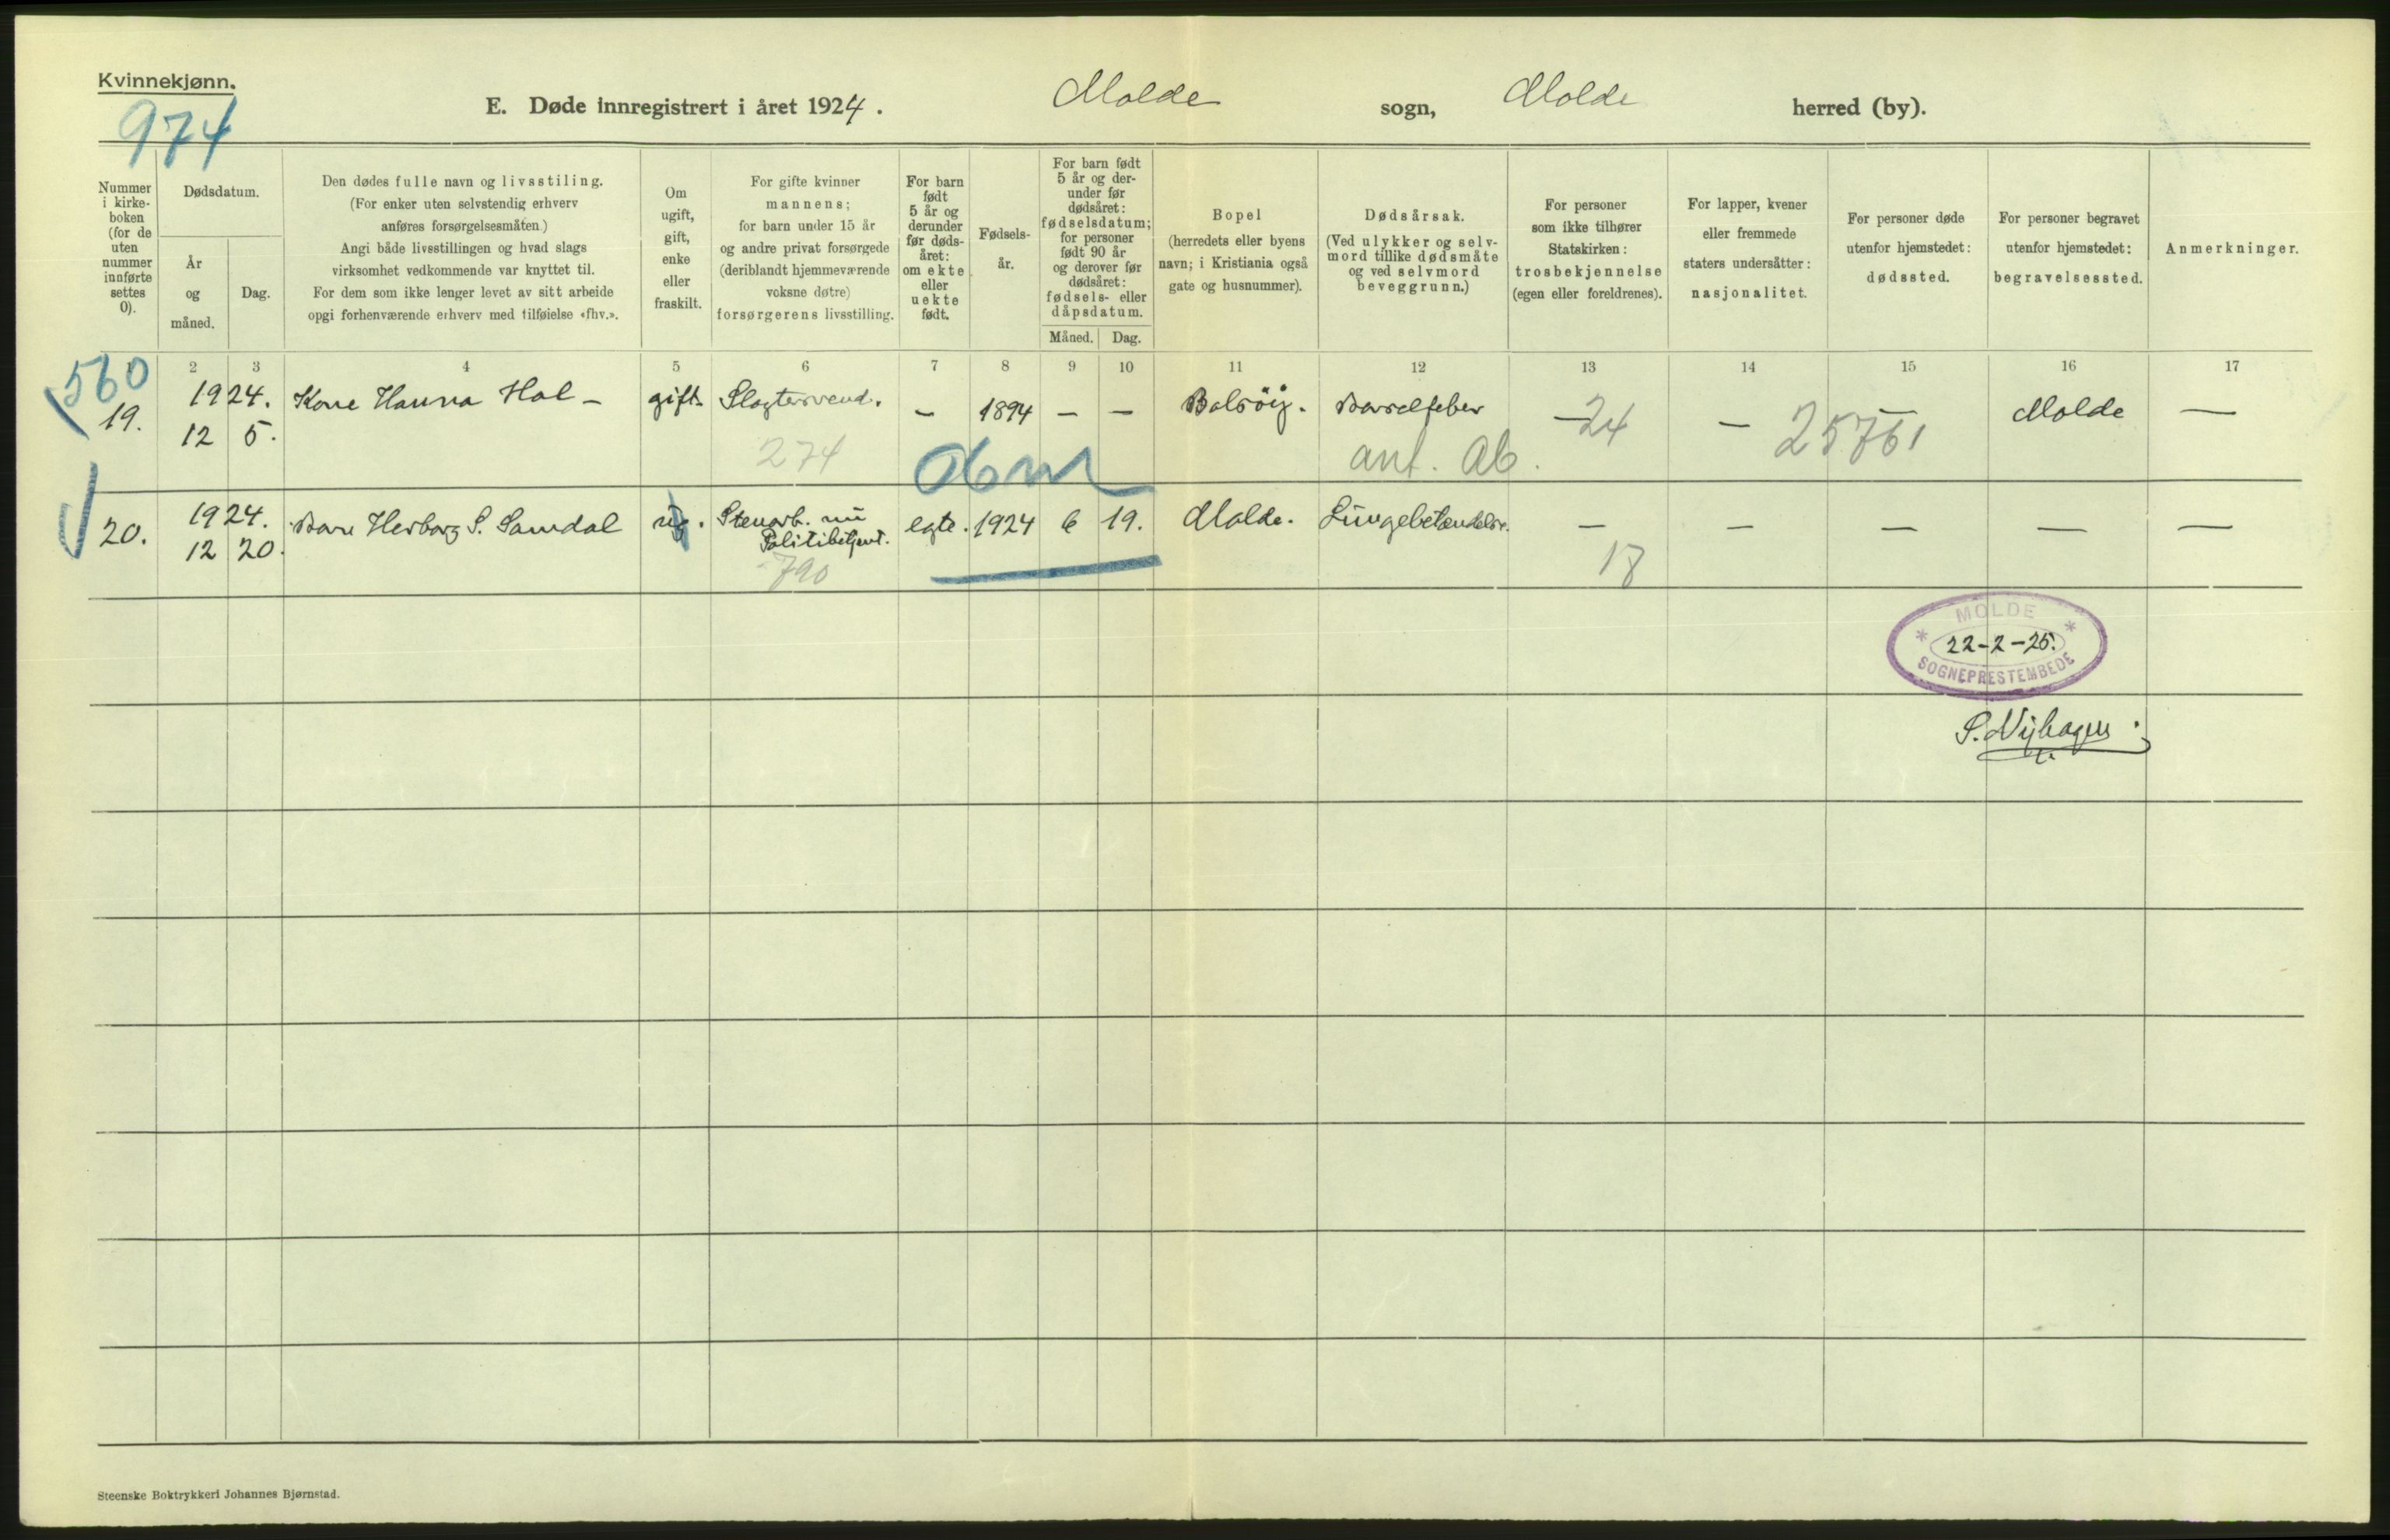 Kvinnekjønn.
974
E. Døde innregistrert i året 1924. Molde sogn, Molde herred (by).
Nummer
i kirke-
boken
(for de
uten
nummer
innførte
settes
0).
Dødsdatum.
År
og
måned.
Dag.
Den dødes fulle navn og livsstiling.
(For enker uten selvstendig erhverv
anføres forsørgelsesmåten.)
Angi både livsstillingen og hvad slags
virksomhet vedkommende var knyttet til.
For dem som ikke lenger levet av sitt arbeide
opgi forhenværende erhverv med tilføielse «fhv.».
Om
ugift,
gift,
enke
eller
fraskilt.
For gifte kvinner
mannens;
for barn under 15 år
og andre privat forsørgede
(deriblandt hjemmeværende
voksne døtre)
forsørgerens livsstilling.
For barn
født
5 år og
derunder
før døds-
året:
om ekte
eller
uekte
født.
Fødsels-
år.
For barn født
5 år og der-
under før
dødsåret:
fødselsdatum;
for personer
født 90 år
og derover før
dødsåret:
fødsels- eller
dåpsdatum.
Måned. Dag.
Bopel
(herredets eller byens
navn; i Kristiania også
gate og husnummer).
Dødsårsak.
(Ved ulykker og selv-
mord tillike dødsmåte
og ved selvmord
beveggrunn.)
For personer
som ikke tilhører
Statskirken:
trosbekjennelse
(egen eller foreldrenes).
For lapper, kvener
eller fremmede
staters undersåtter:
nasjonalitet.
For personer døde
utenfor hjemstedet:
dødssted.
For personer begravet
utenfor hjemstedet:
begravelsessted.
Anmerkninger.
1 2 3 4 5 6 7 8 9 10 11 12 13 14 15 16 17
560
1924. Kone Hanna Hol – gift. Slagtersvend. – 1894 – – Bolsöy. Barselfeber – 24 – – Molde —
19. 12 5.
274 ant. Ab. 25761
1924. Barn Herborg S. Samdal ug. Stenarb. nu egte. 1924 6 19. Molde. Lungebetændelse. — — — — —
20. 12 20. Politibetjent.
790 18
MOLDE
22-2-25.
SOGNEPRESTEMBEDE
S. Nyhagen
Steenske Boktrykkeri Johannes Bjørnstad.